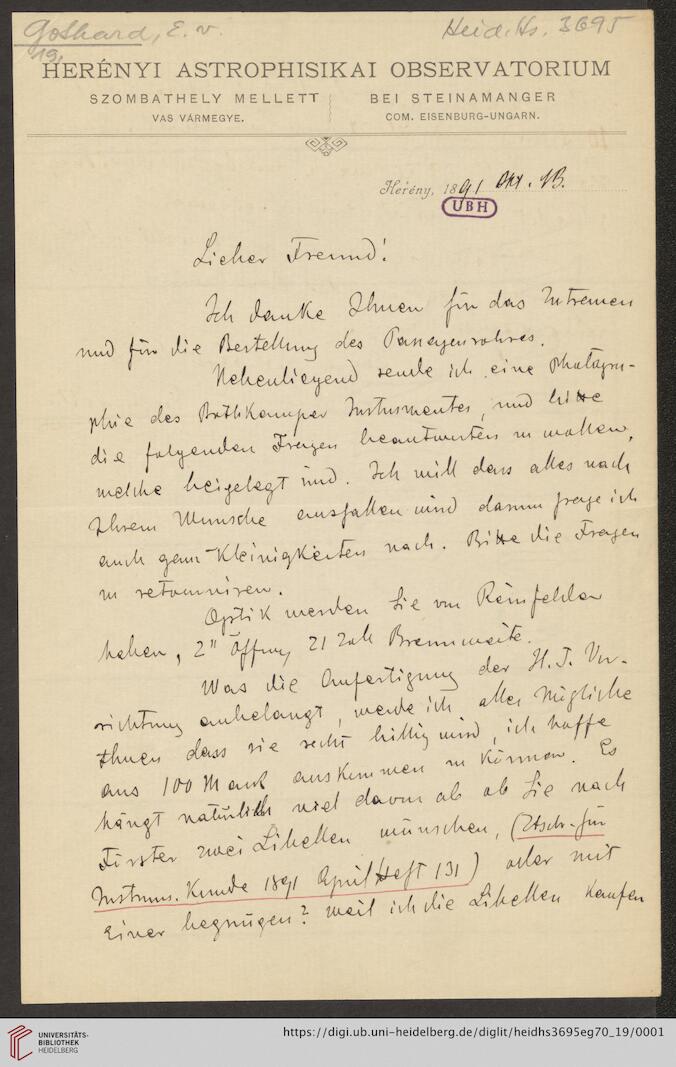 Gothard, E. v.
19,
Heid. Hs. 3695
HERÉNYI ASTROPHISIKAI OBSERVATORIUM
SZOMBATHELY MELLETT
BEI STEINAMANGER
VAS VÁRMEGYE.
COM. EISENBURG-UNGARN.
Herény, 1891 Okt. 13.
UBH
Lieber Freund!
Ich danke Ihnen für das Zutrauen
und für die Bestellung des Passagenrohres.
Nebenliegend sende ich eine Photogra-
phie des Bothkamper Instrumentes, und bitte
die folgenden Fragen beantworten zu wollen,
welche beigelegt sind. Ich will dass alles nach
Ihrem Wunsche ausfallen wird darum frage ich
auch ganz Kleinigkeiten nach. Bitte die Fragen
zu retourniren.
Optik werden Sie von Reinfelder
haben, 2" Öffnung 21 Zoll Brennweite.
Was die Anfertigung der H. T. Vor-
richtung anbelangt, werde ich alles Mögliche
thuen dass sie recht billig wird, ich hoffe
aus 100 Mark auskommen zu können. Es
hängt natürlich viel davon ab ob Sie nach
Förster zwei Libellen wünschen, (Ztschr. für
Instrum. Kunde 1891 April Heft 131) oder mit
einer begnügen? weil ich die Libellen kaufen
UNIVERSITÄTS-
BIBLIOTHEK
HEIDELBERG
https://digi.ub.uni-heidelberg.de/diglit/heidhs3695eg70_19/0001